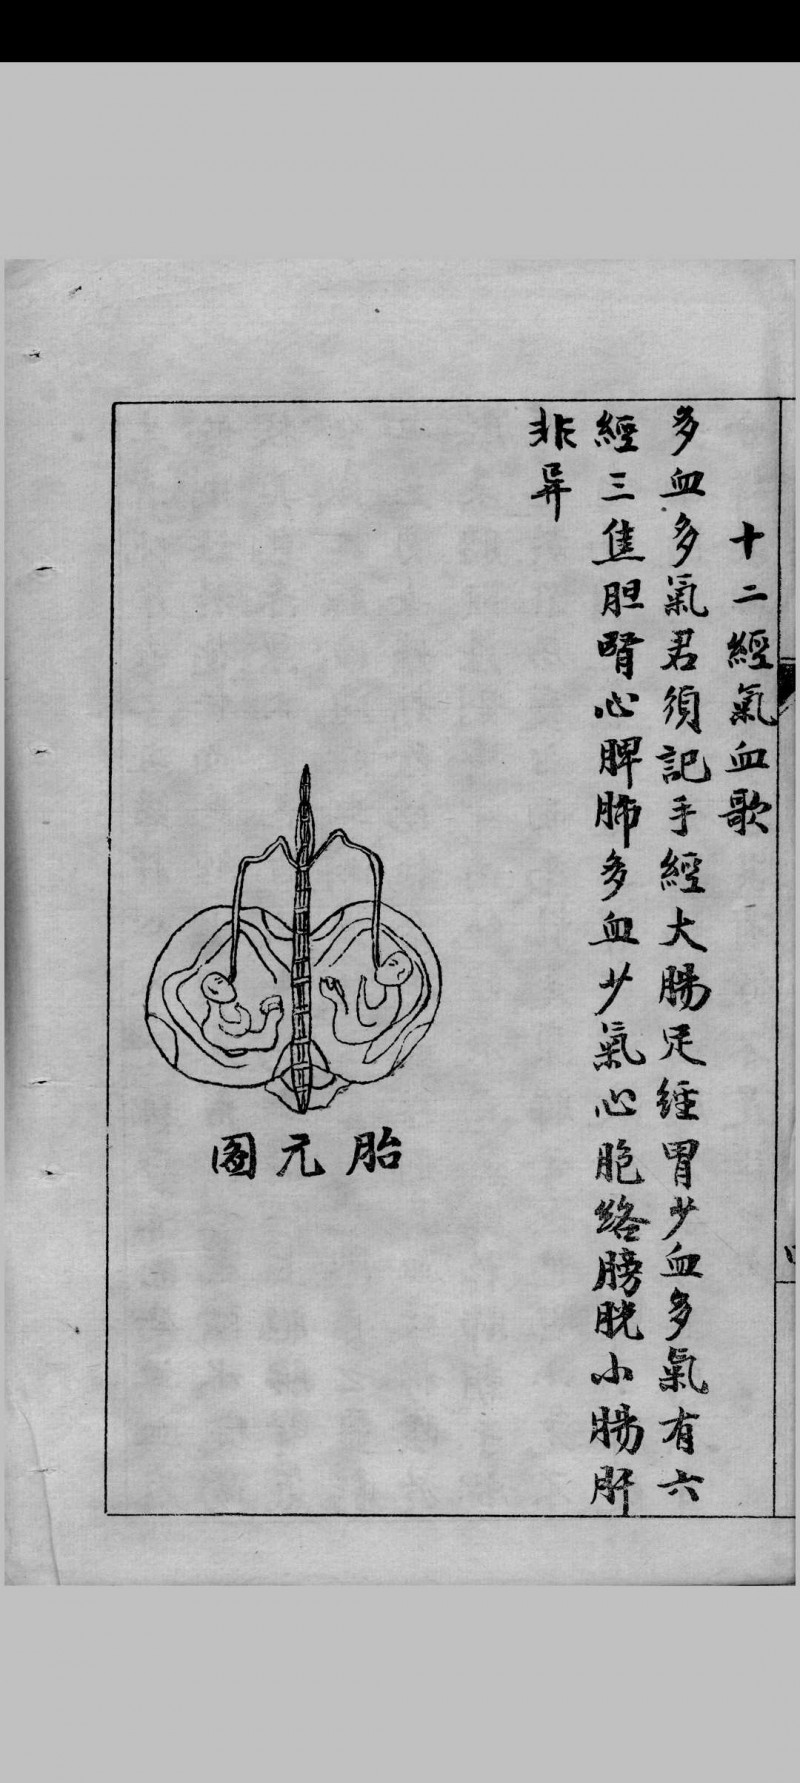 十二經氣血歌
多血多氣君須記手經大腸足經胃少血多氣有六
經三焦胆腎心脾肺多血少氣心胞絡膀胱小腸肝
非异
胎元图